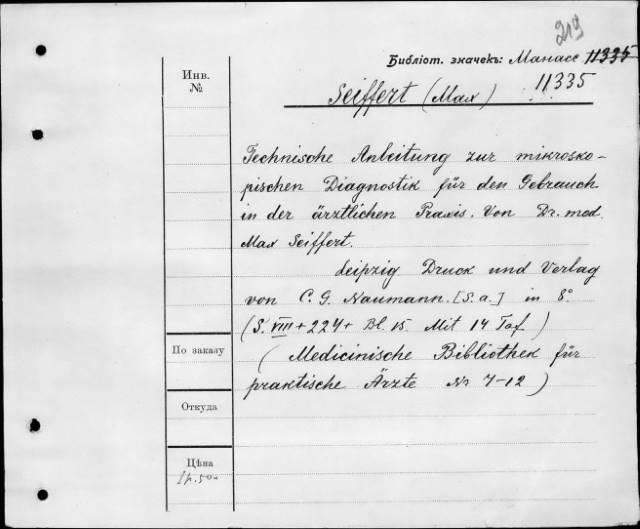 219
Библіот. значекъ: Манасс 11335
11335
Инв.
№
Seiffert (Max)
Technische Anleitung zur mikrosko-
pischen Diagnostik für den Gebrauch
in der ärztlichen Praxis. Von Dr. med.
Max Seiffert.
Leipzig Druck und Verlag
von C. G. Naumann. [S. a.] in 8°
(S. VIII + 224 + Bl. 15. Mit 14 Taf.)
По заказу
(Medicinische Bibliothek für
praktische Ärzte Nr 7-12)
Откуда
Цѣна
1 р. 50 к